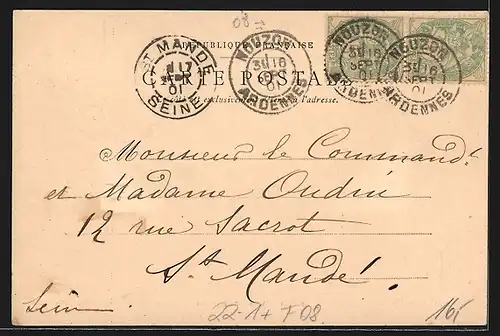 08
RÉPUBLIQUE FRANÇAISE
CARTE POSTALE
exclusivement l'adresse.
ST MANDÉ
17
01
SEINE
NOUZON
3E 16
SEPT
01
ARDENNES
NOUZON
3E 16
SEPT
01
ARDENNES
NOUZON
3E 16
SEPT
01
ARDENNES
Monsieur le Commandt
et Madame Oudin
12 rue Sacrot
St Mandé!
Seine
22-1+ F08